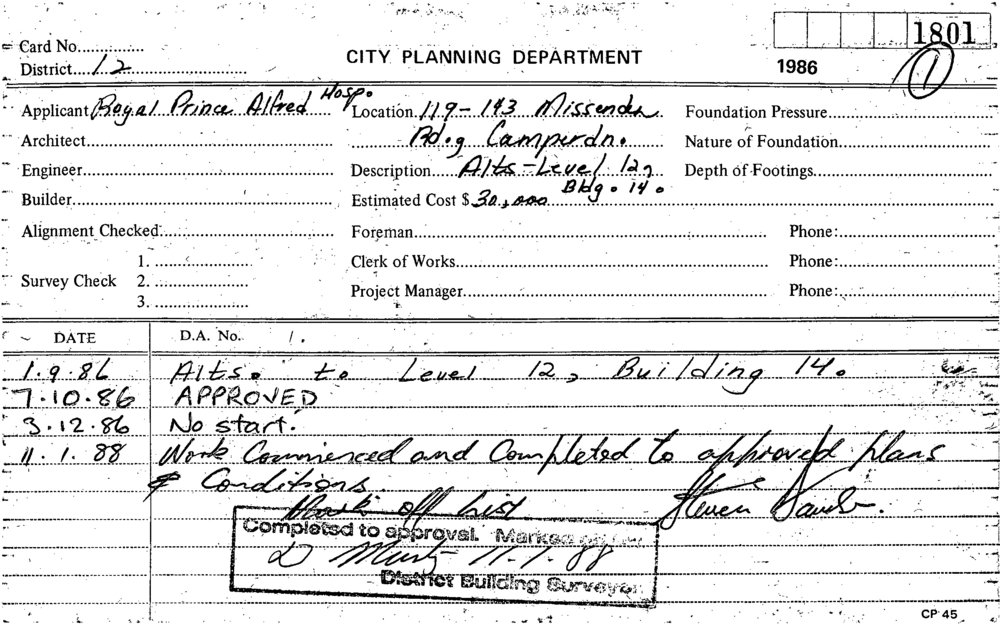 1801
Card No.
CITY PLANNING DEPARTMENT
District 12
1986
1
Applicant Royal Prince Alfred Hosp. Location 119-143 Missenden Foundation Pressure
Architect Rd., Camperdn. Nature of Foundation
Engineer Description Alts-Level 12, Depth of Footings
Bldg. 14.
Builder Estimated Cost $ 30,000
Alignment Checked: Foreman Phone:
1. Clerk of Works Phone:
Survey Check 2.
3. Project Manager Phone:
DATE D.A. No.
1.9.86 Alts. to Level 12, Building 14.
7.10.86 APPROVED
3.12.86 No start.
11.1.88 Work Commenced and Completed to approved plans
& Conditions.
Mark off List Steven
Completed to approval. Marked off
D 11.1.88
District Building Surveyor
CP 45